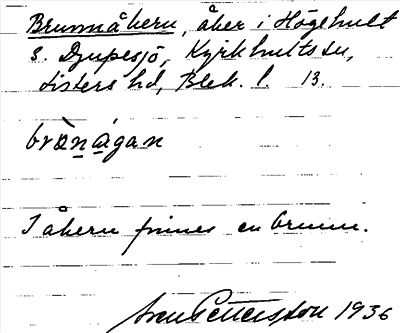 Brunnåkern, åker i Högehult
s. Djupesjö, Kyrkhults sn,
Listers hd, Blek. l. 13.
brànágan
I åkern finnes en brunn.
Sven Pettersson 1936